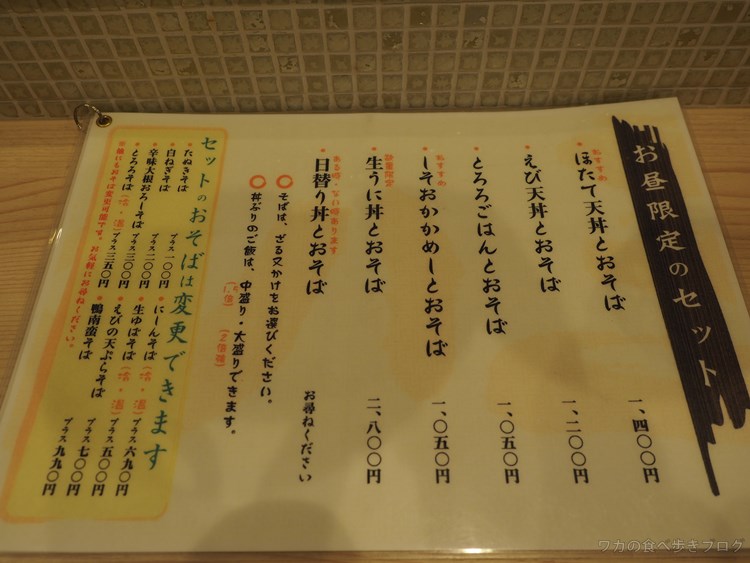 お昼限定のセット
おすすめ
ほたて天丼とおそば 一、四〇〇円
えび天丼とおそば 一、二〇〇円
とろろごはんとおそば 一、〇五〇円
おすすめ
しそおかかめしとおそば 一、〇五〇円
数量限定
生うに丼とおそば 二、八〇〇円
ある時、ない時あります
日替り丼とおそば お尋ねください
〇 そばは、ざる又かけをお選びください。
〇 丼ぶりのご飯は、中盛り・大盛りできます。
セットのおそばは変更できます
たぬきそば プラス 一〇〇円
白ねぎそば プラス 二〇〇円
辛味大根おろしそば プラス 三〇〇円
とろろそば(冷・温) プラス 三五〇円
にしんそば プラス 六九〇円
生ゆばそば(冷・温) プラス 五〇〇円
えびの天ぷらそば プラス 七〇〇円
鴨南蛮そば プラス 九九〇円
※他にもおそば変更可能です。お気軽にお尋ねください。
ワカの食べ歩きブログ